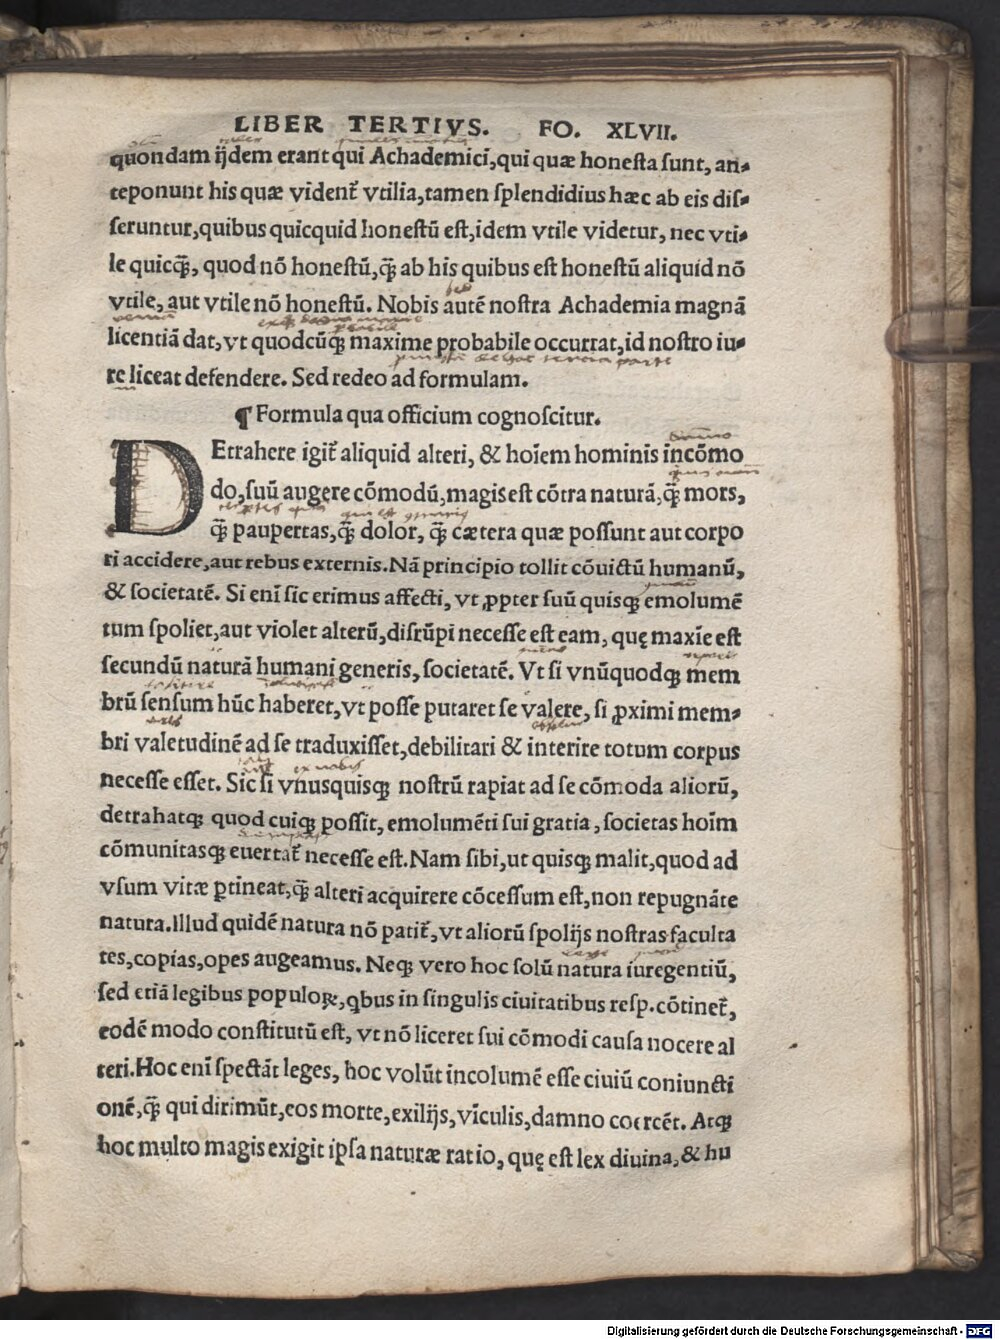 LIBER TERTIVS. FO. XLVII.
quondam ijdem erant qui Achademici, qui quæ honesta sunt, an-
teponunt his quæ videnť vtilia, tamen splendidius hæc ab eis dis-
seruntur, quibus quicquid honestū est, idem vtile videtur, nec vti-
le quicq̄, quod nō honestū, q̄ ab his quibus est honestū aliquid nō
vtile, aut vtile nō honestū. Nobis autē nostra Achademia magnā
licentiā dat, vt quodcūqꝫ maxime probabile occurrat, id nostro iu-
re liceat defendere. Sed redeo ad formulam.
¶ Formula qua officium cognoscitur.
DEtrahere igiť aliquid alteri, & hoīem hominis incōmo
do, suū augere cōmodū, magis est cōtra naturā, q̄ mors,
q̄ paupertas, q̄ dolor, q̄ cætera quæ possunt aut corpo
ri accidere, aut rebus externis. Nā principio tollit cōuictū humanū,
& societatē. Si enī sic erimus affecti, vt ꝓpter suū quisqꝫ emolumē
tum spoliet, aut violet alterū, disrūpi necesse est eam, quę maxīe est
secundū naturā humani generis, societatē. Vt si vnūquodqꝫ mem
brū sensum hūc haberet, vt posse putaret se valere, si ꝓximi mem-
bri valetudinē ad se traduxisset, debilitari & interire totum corpus
necesse esset. Sic si vnusquisqꝫ nostrū rapiat ad se cōmoda aliorū,
detrahatqꝫ quod cuiqꝫ possit, emolumēti sui gratia, societas hoīm
cōmunitasqꝫ euertať necesse est. Nam sibi, ut quisqꝫ malit, quod ad
vsum vitæ ꝑtineat, q̄ alteri acquirere cōcessum est, non repugnāte
natura. Illud quidē natura nō patiť, vt aliorū spolijs nostras faculta
tes, copias, opes augeamus. Neqꝫ vero hoc solū natura iuregentiū,
sed etiā legibus populoꝝ, qbus in singulis ciuitatibus resp. cōtineť,
eodē modo constitutū est, vt nō liceret sui cōmodi causa nocere al
teri. Hoc enī spectāt leges, hoc volūt incolumē esse ciuiū coniuncti
onē, q̄ qui dirimūt, eos morte, exilijs, vīculis, damno coercēt. Atqꝫ
hoc multo magis exigit ipsa naturæ ratio, quę est lex diuina, & hu
Digitalisierung gefördert durch die Deutsche Forschungsgemeinschaft - DFG